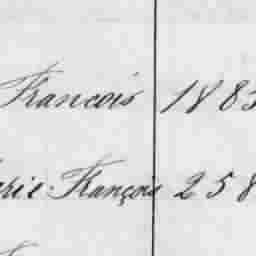 François 1883
arie-François 258